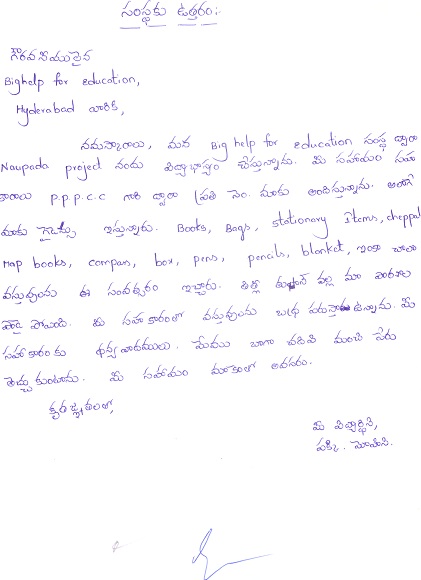 సంస్థకు ఉత్తరం:-
గౌరవనీయులైన
Bighelp for education,
Hyderabad వారికి,
నమస్కారాలు, మన Big help for education సంస్థ ద్వారా
Naupada project నందు విద్యాభ్యాసం చేస్తున్నాను. మీ సహాయం సహ
కారాలు P.P.P.C.C గారి ద్వారా ప్రతి నెల మాకు అందిస్తున్నారు. అలాగే
మాకు ఇస్తున్నారు. Books, Bags, stationary Items, cheppal
Map books, compan, box, pens, pencils, blanket, ఇంకా చాలా
వస్తువులను ఈ సంవత్సరం ఇచ్చారు. వల్ల మా
పోయింది. మీ సహకారంతో వస్తువులను ఉన్నాను. మీ
సహకారంకు ధన్యవాదములు. మేము బాగా చదివి మంచి పేరు
తెచ్చుకుంటాను. మీ సహాయం మాకెంతో అవసరం.
కృతజ్ఞతలతో,
మీ విద్యార్థిని,
పక్కి. మోహిని.